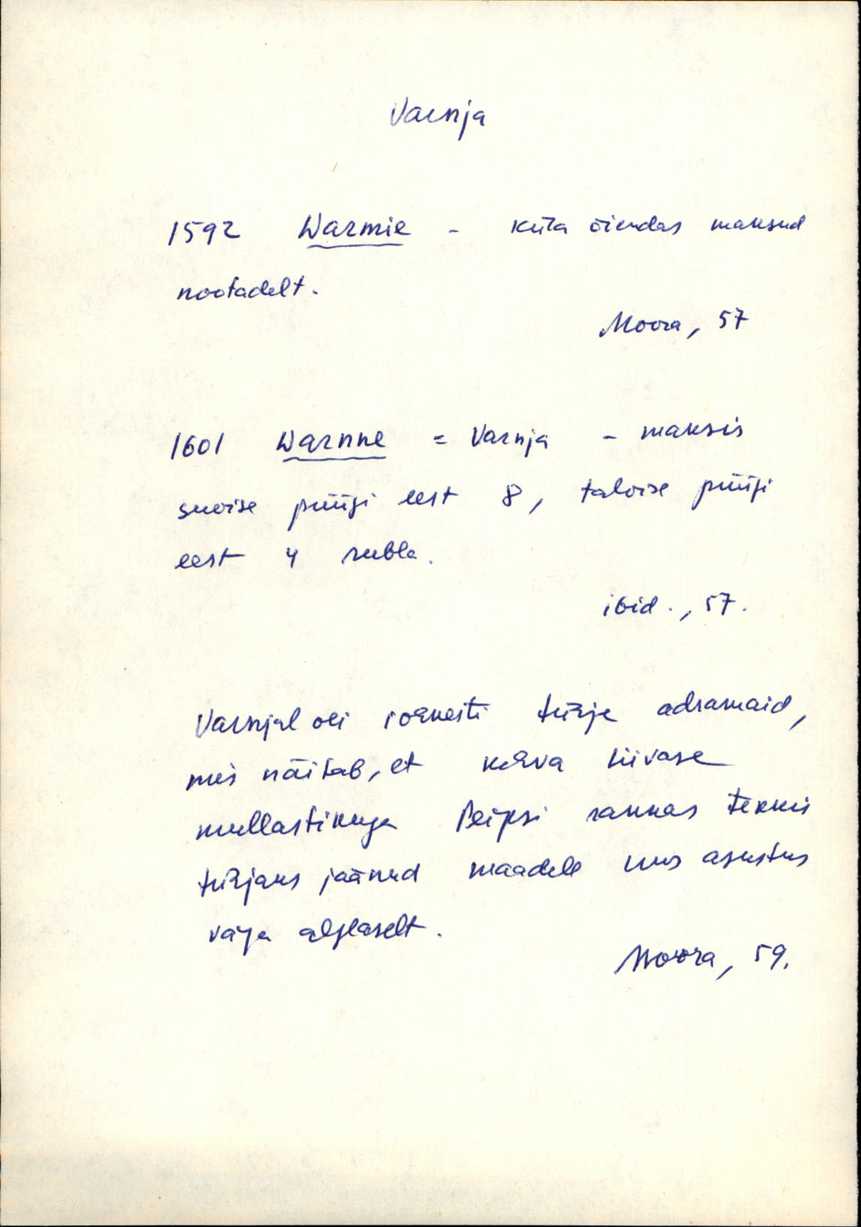 Varnja
1592 Warmie - küla õiendas maksud
nootadelt.
Moora, 57
1601 Warnne = Varnja - maksis
suvise püügi eest 8, talvise püügi
eest 4 rubla.
ibid., 57.
Varnjal oli isegi tühje adramaid,
mis näitab, et kõrva liivase
mullastikuga Peipsi rannas
tühjaks jäänud maadele uus asustus
väga aeglaselt.
Moora, 59.